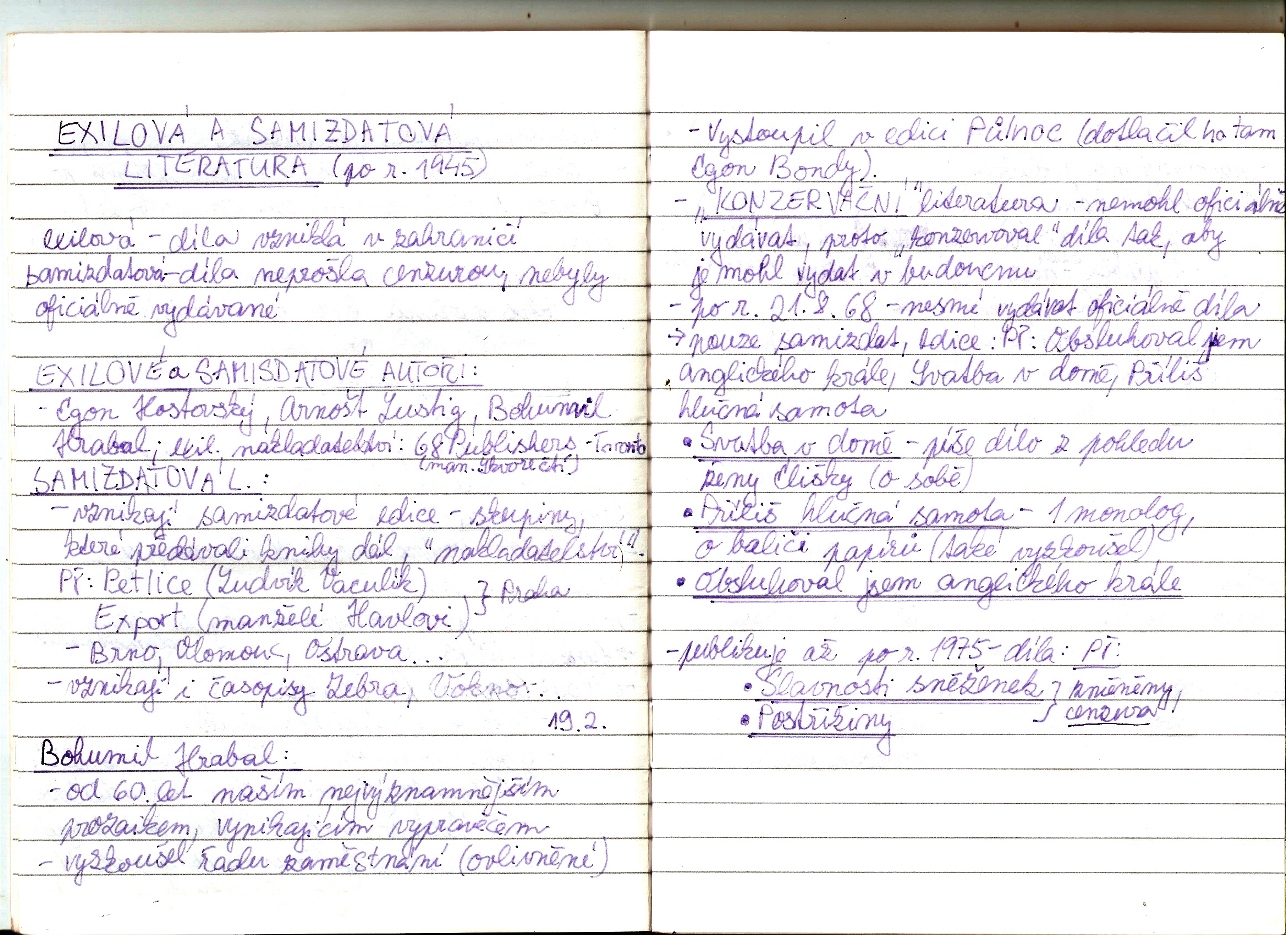 EXILOVÁ A SAMIZDATOVÁ
LITERATURA (po r. 1945)
exilová - díla vzniklá v zahraničí
samizdatová - díla neprošla cenzurou, nebyly
oficiálně vydávané
EXILOVÉ a SAMISDATOVÉ AUTOŘI:
- Egon Hostovský, Arnošt Lustig, Bohumil
Hrabal; exil. nakladatelství: 68 Publishers - Toronto
(man. Škvorečtí)
SAMIZDATOVÁ L.:
- vznikají samizdatové edice - skupiny,
které předávali knihy dál, "nakladatelství"
Př: Petlice (Ludvík Vaculík)
Export (manželé Havlovi) } Praha
- Brno, Olomouc, Ostrava...
- vznikají i časopisy Zebra, Vokno...
19.2.
Bohumil Hrabal:
- od 60. let naším nejvýznamnějším
prozaikem, vynikajícím vypravěčem
- vyzkoušel řadu zaměstnání (ovlivněné)
- Vystoupil v edici Půlnoc (dotlačil ho tam
Egon Bondy).
- „KONZERVAČNÍ" literatura - nemohl oficiálně
vydávat, proto „konzervoval" díla tak, aby
je mohl vydat v budoucnu
- po r. 21.8.68 - nesmí vydávat oficiálně díla
→ pouze samizdat, edice: Př: Obsluhoval jsem
anglického krále, Svatba v domě, Příliš
hlučná samota
• Svatba v domě - píše dílo z pohledu
ženy Elišky (o sobě)
• Příliš hlučná samota - 1 monolog,
o baliči papíru (také vyzkoušel)
• Obsluhoval jsem anglického krále
- publikuje až po r. 1975 - díla: Př:
• Slavnosti sněženek } změněny,
• Postřižiny cenzura!